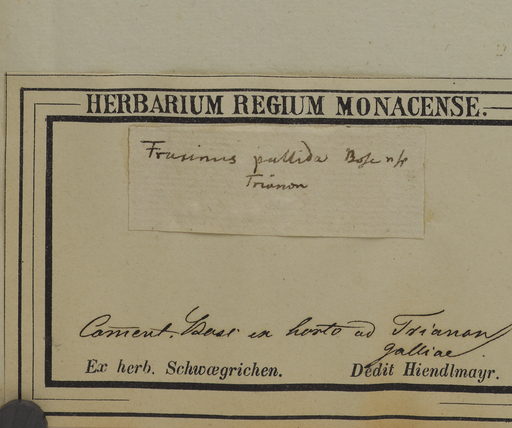 HERBARIUM REGIUM MONACENSE.
Fraxinus pallida Bosc
Trianon
Comm. Bosc ex horto ad Trianon
galliae.
Ex herb. Schwægrichen. Dedit Hiendlmayr.